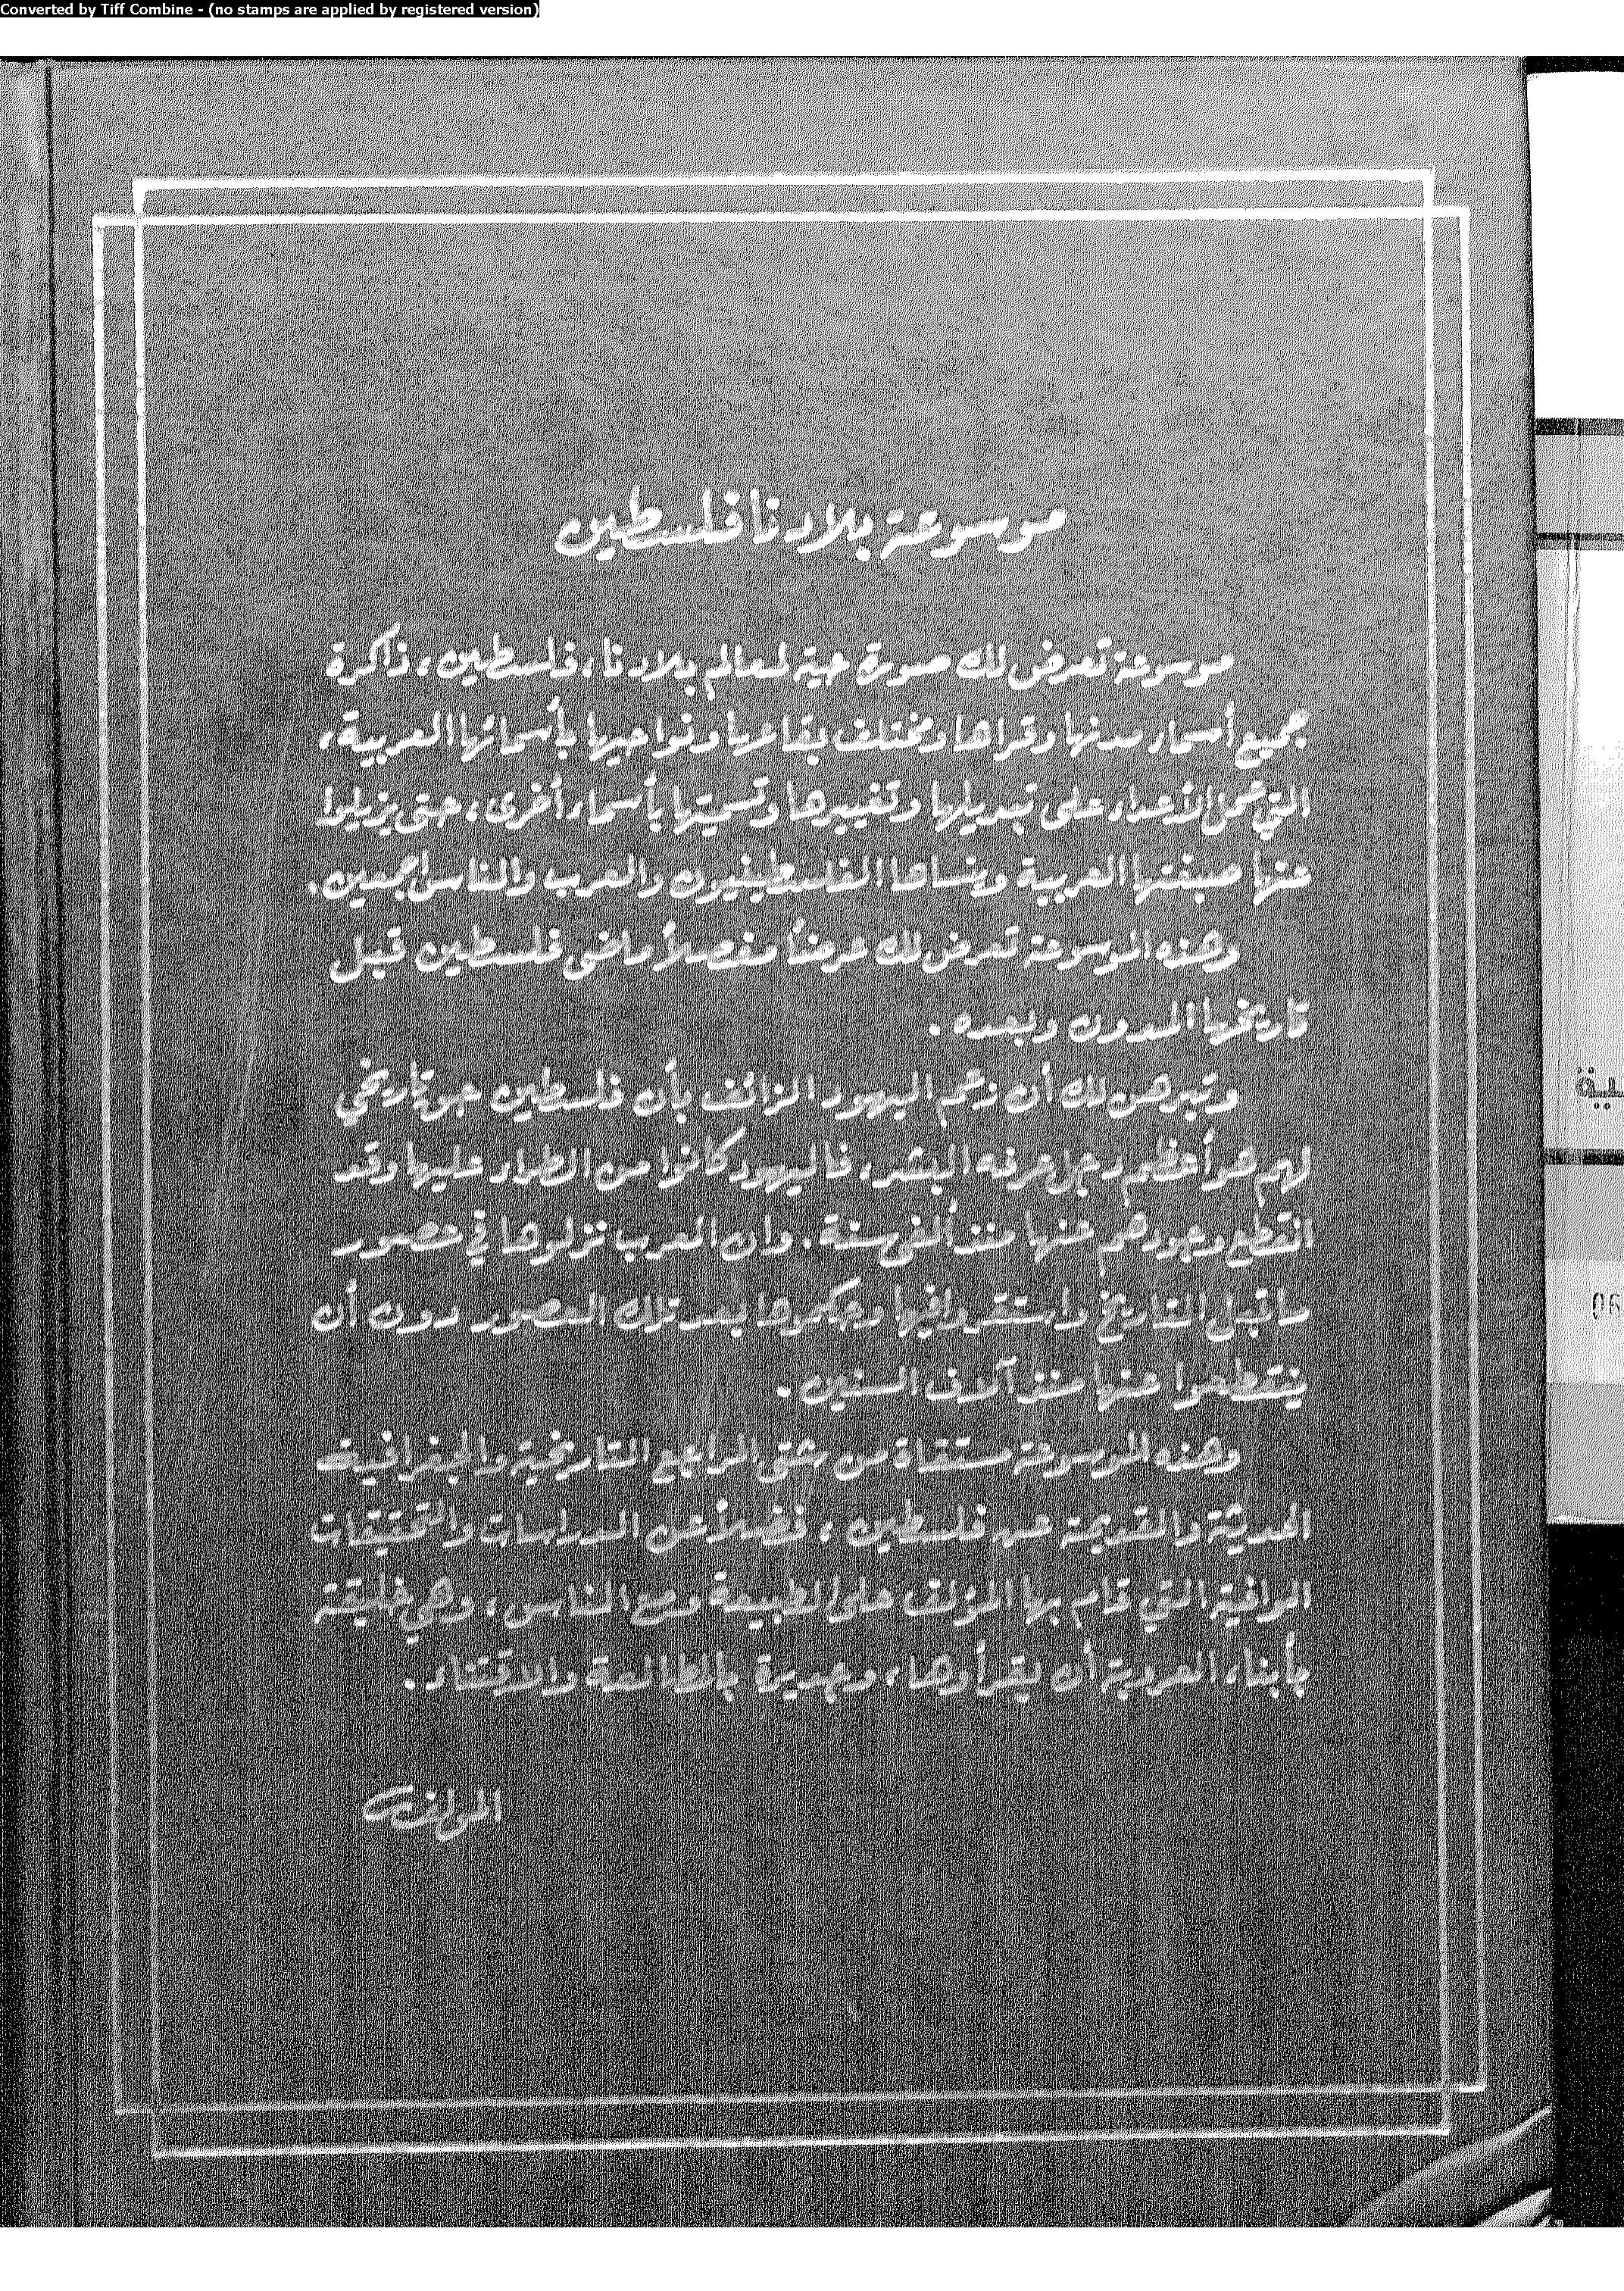 Converted by Tiff Combine - (no stamps are applied by registered version)
موسوعة بلادنا فلسطين
موسوعة تعرض لك صورة حية لمعالم بلادنا، فلسطين، ذاكرة
جميع أسماء مدنها وقراها ومختلف بقاعها ونواحيها بأسمائها العربية،
التي عمل الأعداء على تبديلها وتغييرها وتسميتها بأسماء أخرى، حتى يزيلوا
عنها صبغتها العربية وينساها الفلسطينيون والعرب والناس أجمعين.
وهذه الموسوعة تعرض لك عرضاً مفصلاً ماضي فلسطين قبل
تاريخها المدون وبعده.
وتبرهن لك أن زعم اليهود الزائف بأن فلسطين حق تاريخي
لهم هو أعظم دجل عرفه البشر، فاليهود كانوا من الطراء عليها وقد
انقطع وجودهم عنها منذ ألفي سنة. وان العرب نزلوها في عصور
ما قبل التاريخ واستقروا فيها وحكموها بعد تلك العصور دون أن
ينقطعوا عنها منذ آلاف السنين.
وهذه الموسوعة مستقاة من شتى المراجع التاريخية والجغرافية
الحديثة والقديمة عن فلسطين، فضلاً عن الدراسات والتحقيقات
الوافية التي قام بها المؤلف على الطبيعة ومع الناس، وهي خليقة
بأبناء العروبة أن يقرأوها، وجديرة بالمطالعة والاقتناء.
المؤلف
06